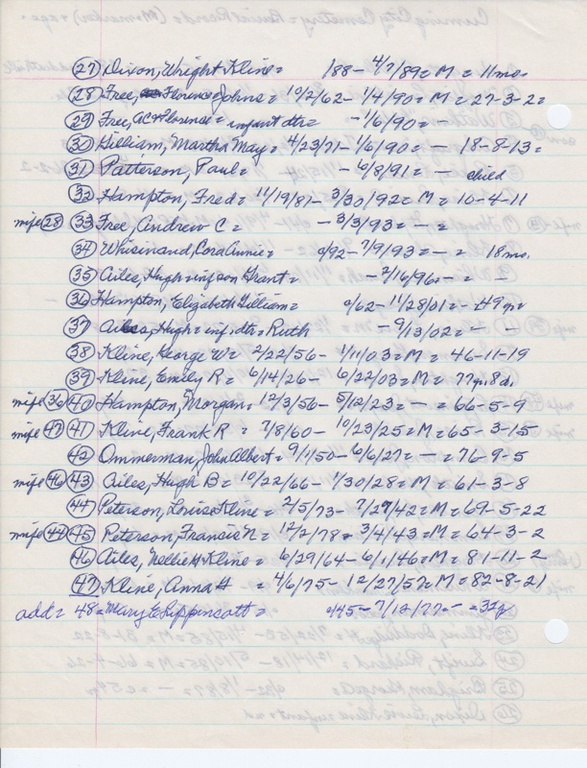 (27) Dixon, Wright Kline = 188- 4/7/89 = M = 11 mo.
(28) Free, Florence Johns = 10/2/62 - 1/4/90 = M = 27-3-2 =
(29) Free, AC + Florence = infant dtr = -1/6/90 = -
(30) Gilliam, Martha May = 4/23/71 - 1/6/90 = - 18-8-13 =
(31) Patterson, Paul = - 6/8/91 = - child
(32) Hampton, Fred = 11/19/81 - 3/30/92 = M = 10-4-11
wife (28) (33) Free, Andrew C = - 3/3/93 = - =
(34) Whisinand, Cora Annie = 0/92 - 7/9/93 = - = 18 mo.
(35) Ailes, Hugh = inf son Grant = - 2/16/96 = - = -
(36) Hampton, Elizabeth Gilliam = 0/62 - 11/28/01 = - = 49 yr =
(37) Ailes, Hugh = inf. dtr = Ruth - 9/13/02 = - -
(38) Kline, George W = 2/22/56 - 1/11/03 = M = 46-11-19
(39) Kline, Emily R = 6/14/26 - 6/22/03 = M = 77 yr. 8 d.
wife (36) (40) Hampton, Morgan = 12/3/56 - 5/12/23 = - = 66-5-9
wife (47) (41) Kline, Frank R = 7/8/60 - 10/23/25 = M = 65-3-15
(42) Ommerman, John Albert = 9/1/50 - 6/6/27 = - = 76-9-5
wife (46) (43) Ailes, Hugh B = 10/22/66 - 1/30/28 = M = 61-3-8
(44) Peterson, Louise Kline = 2/5/73 - 7/27/42 = M = 69-5-22
wife (44) (45) Peterson, Francis N = 12/2/78 = 3/4/43 = M = 64-3-2
(46) Ailes, Nellie H Kline = 6/29/64 - 6/1/46 = M = 81-11-2
(47) Kline, Anna H = 4/6/75 - 12/27/57 = M = 82-8-21
add = 48 = Mary E Lippincott = 0/45 - 7/12/77 = - = 32 y